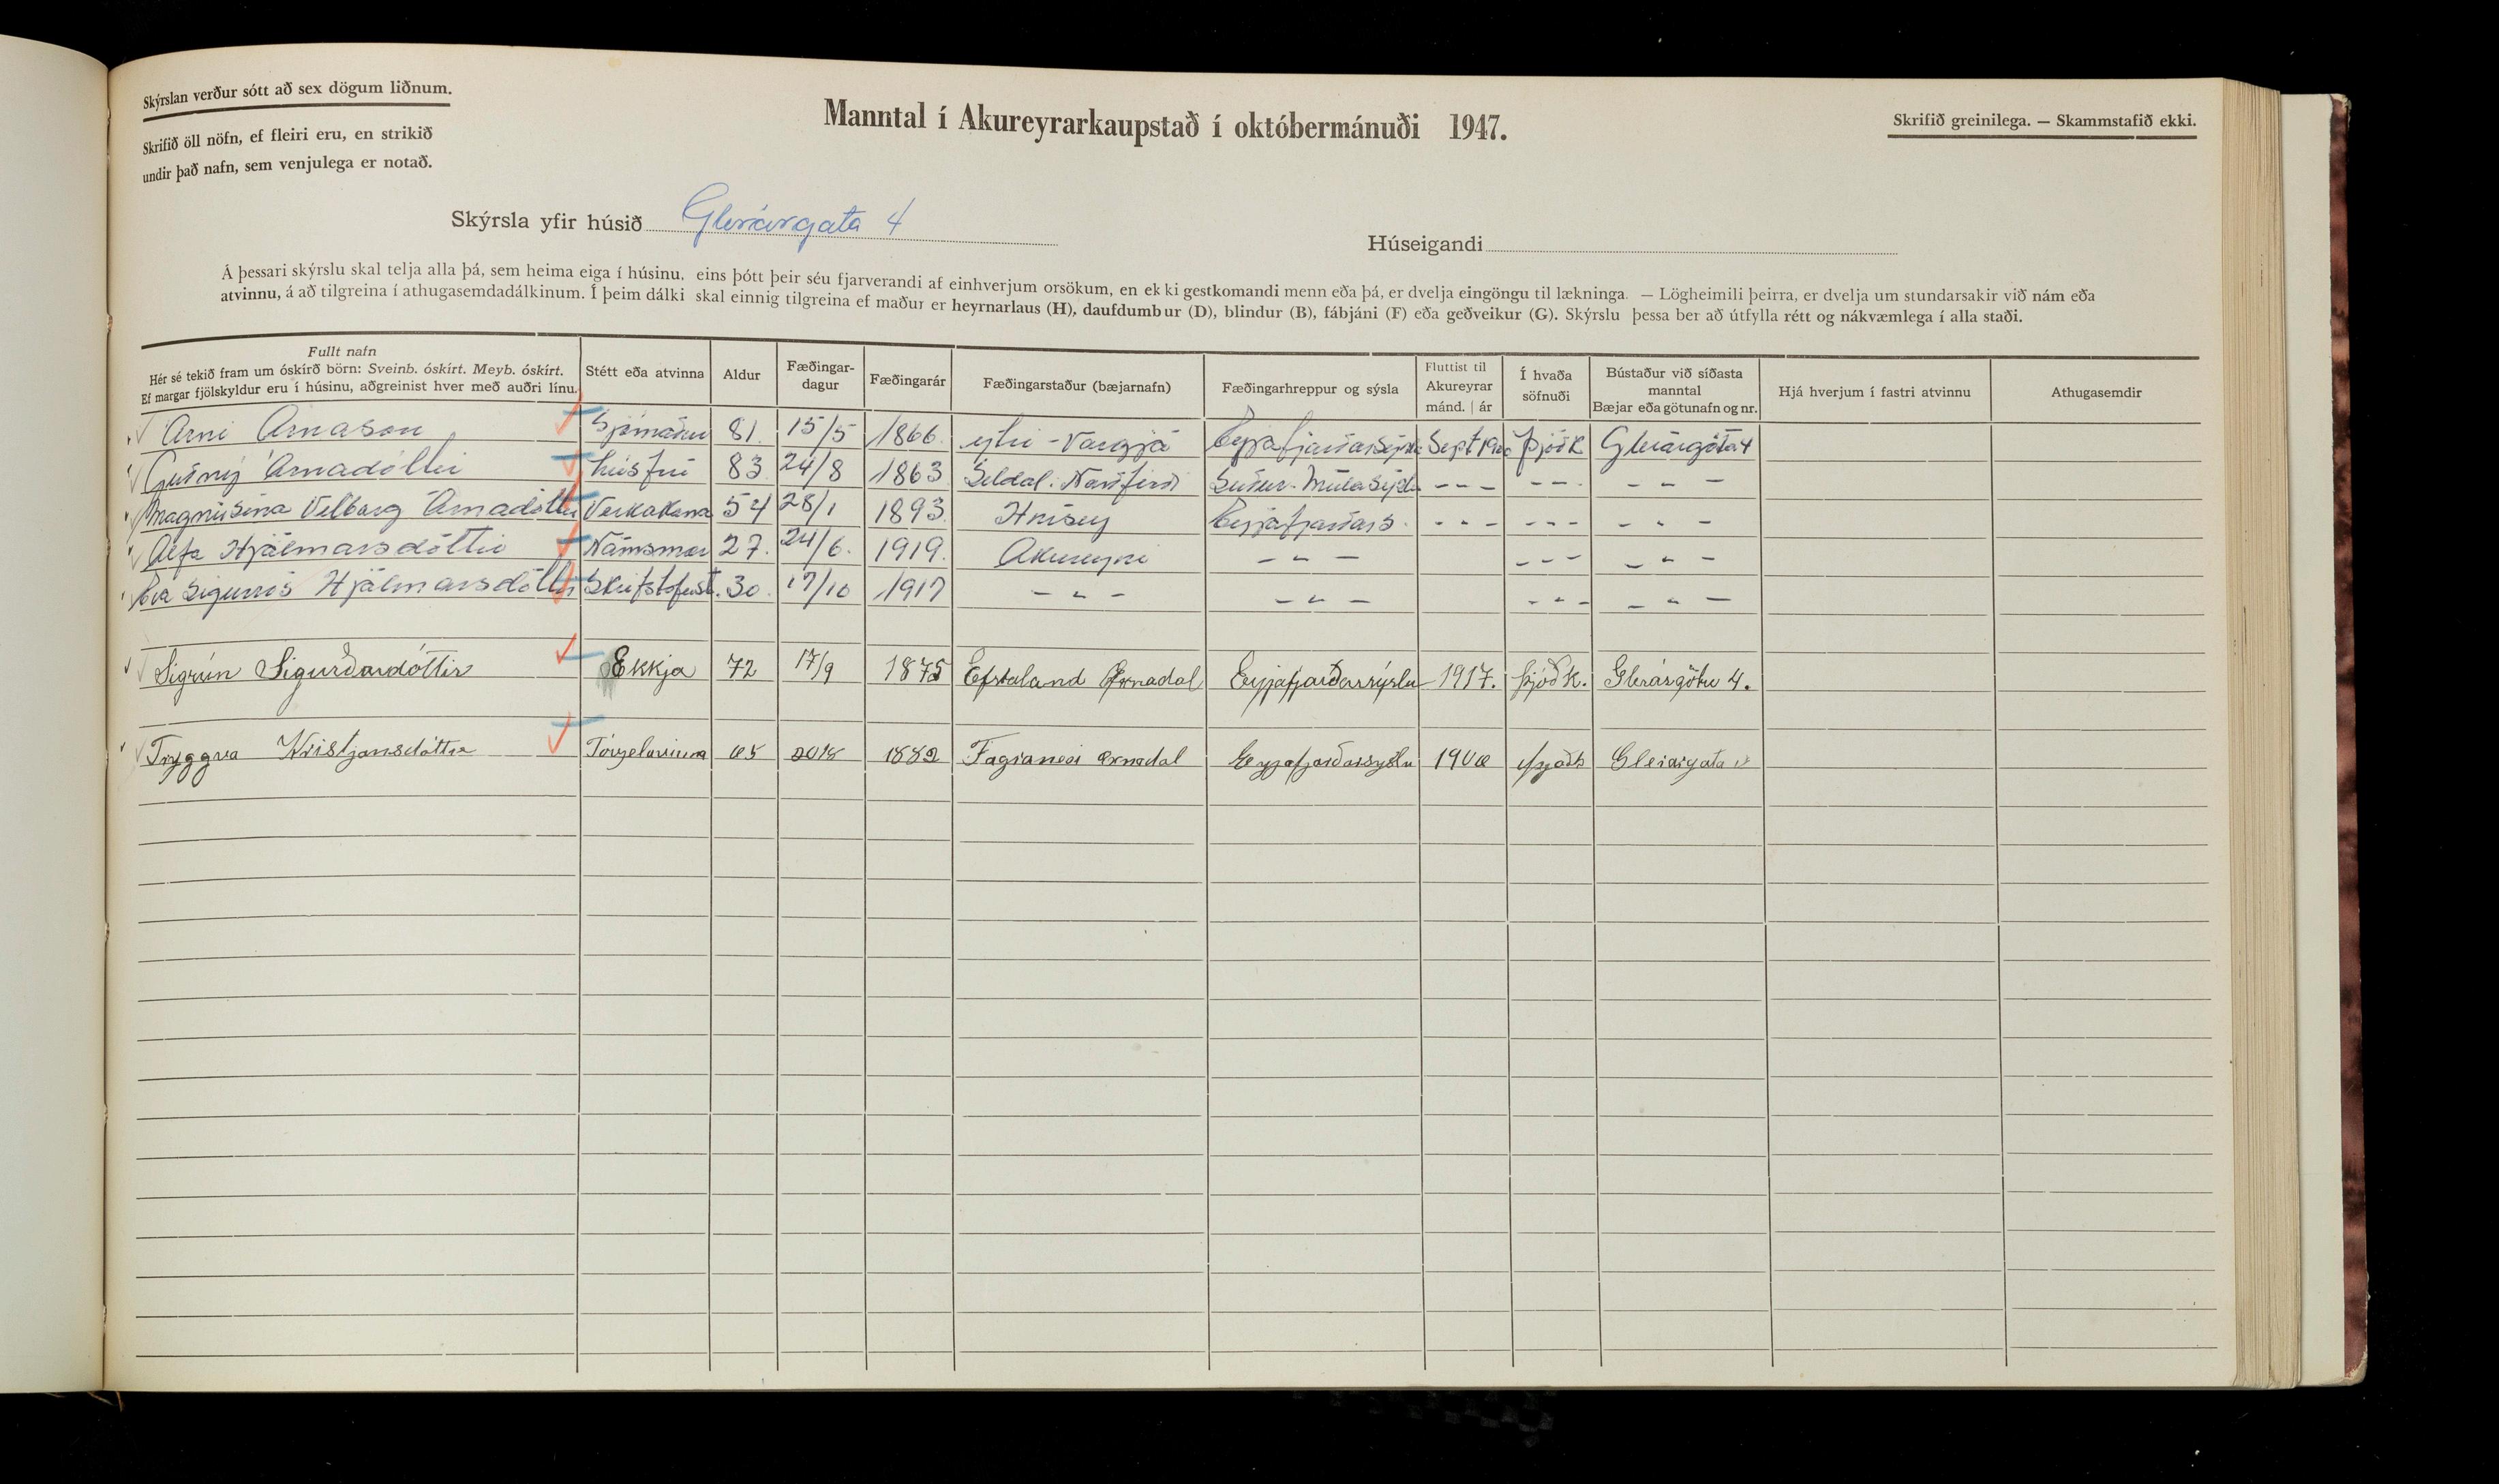 Skýrslan verður sótt að sex dögum liðnum.
Skrifið öll nöfn, ef fleiri eru, en strikið
undir það nafn, sem venjulega er notað.
Manntal í Akureyrarkaupstað í októbermánuði 1947.
Skrifið greinilega. — Skammstafið ekki.
Skýrsla yfir húsið Glerárgata 4
Húseigandi
Á þessari skýrslu skal telja alla þá, sem heima eiga í húsinu, eins þótt þeir séu fjarverandi af einhverjum orsökum, en ekki gestkomandi menn eða þá, er dvelja eingöngu til lækninga. — Lögheimili þeirra, er dvelja um stundarsakir við nám eða
atvinnu, á að tilgreina í athugasemdadálkinum. Í þeim dálki skal einnig tilgreina ef maður er heyrnarlaus (H), daufdumbur (D), blindur (B), fábjáni (F) eða geðveikur (G). Skýrslu þessa ber að útfylla rétt og nákvæmlega í alla staði.
Fullt nafn
Hér sé tekið fram um óskírð börn: Sveinb. óskírt. Meyb. óskírt.
Ef margar fjölskyldur eru í húsinu, aðgreinist hver með auðri línu.
Stétt eða atvinna
Aldur
Fæðingar-
dagur
Fæðingarár
Fæðingarstaður (bæjarnafn)
Fæðingarhreppur og sýsla
Fluttist til
Akureyrar
mánd. | ár
Í hvaða
söfnuði
Bústaður við síðasta
manntal
Bæjar eða götunafn og nr.
Hjá hverjum í fastri atvinnu
Athugasemdir
Arni Arnason Sjómaður 81. 15/5 1866. ytri-Vargjá Eyjafjarðarsýsla Sept Þjóðk Glerárgöta 4
Guðný Arnadóttir húsfrú 83 24/8 1863 Seldal. Norðfirði Suður-Múlasýsla - - - - - - - -
Magnúsína Vilborg Arnadóttir Verkakona 54 28/1 1893. Hrísey Eyjafjarðars. - - - - - - - - -
Alfa Hjálmarsdóttir Námsmær 27. 24/6. 1919. Akureyri - - - - - - - - -
Eva Sigurrós Hjálmarsdóttir Skrifstofust. 30. 17/10 1917 - - - - - - - - - - - -
Sigrún Sigurðardóttir Ekkja 72 17/9 1875 Efstaland Öxnadal Eyjafjarðarsýslu 1917. Þjóðk. Glerárgötu 4.
Tryggva Kristjansdóttir 65 1882 Fagranesi Öxnadal Eyjafjarðarsyslu þjóðk Glerárgata